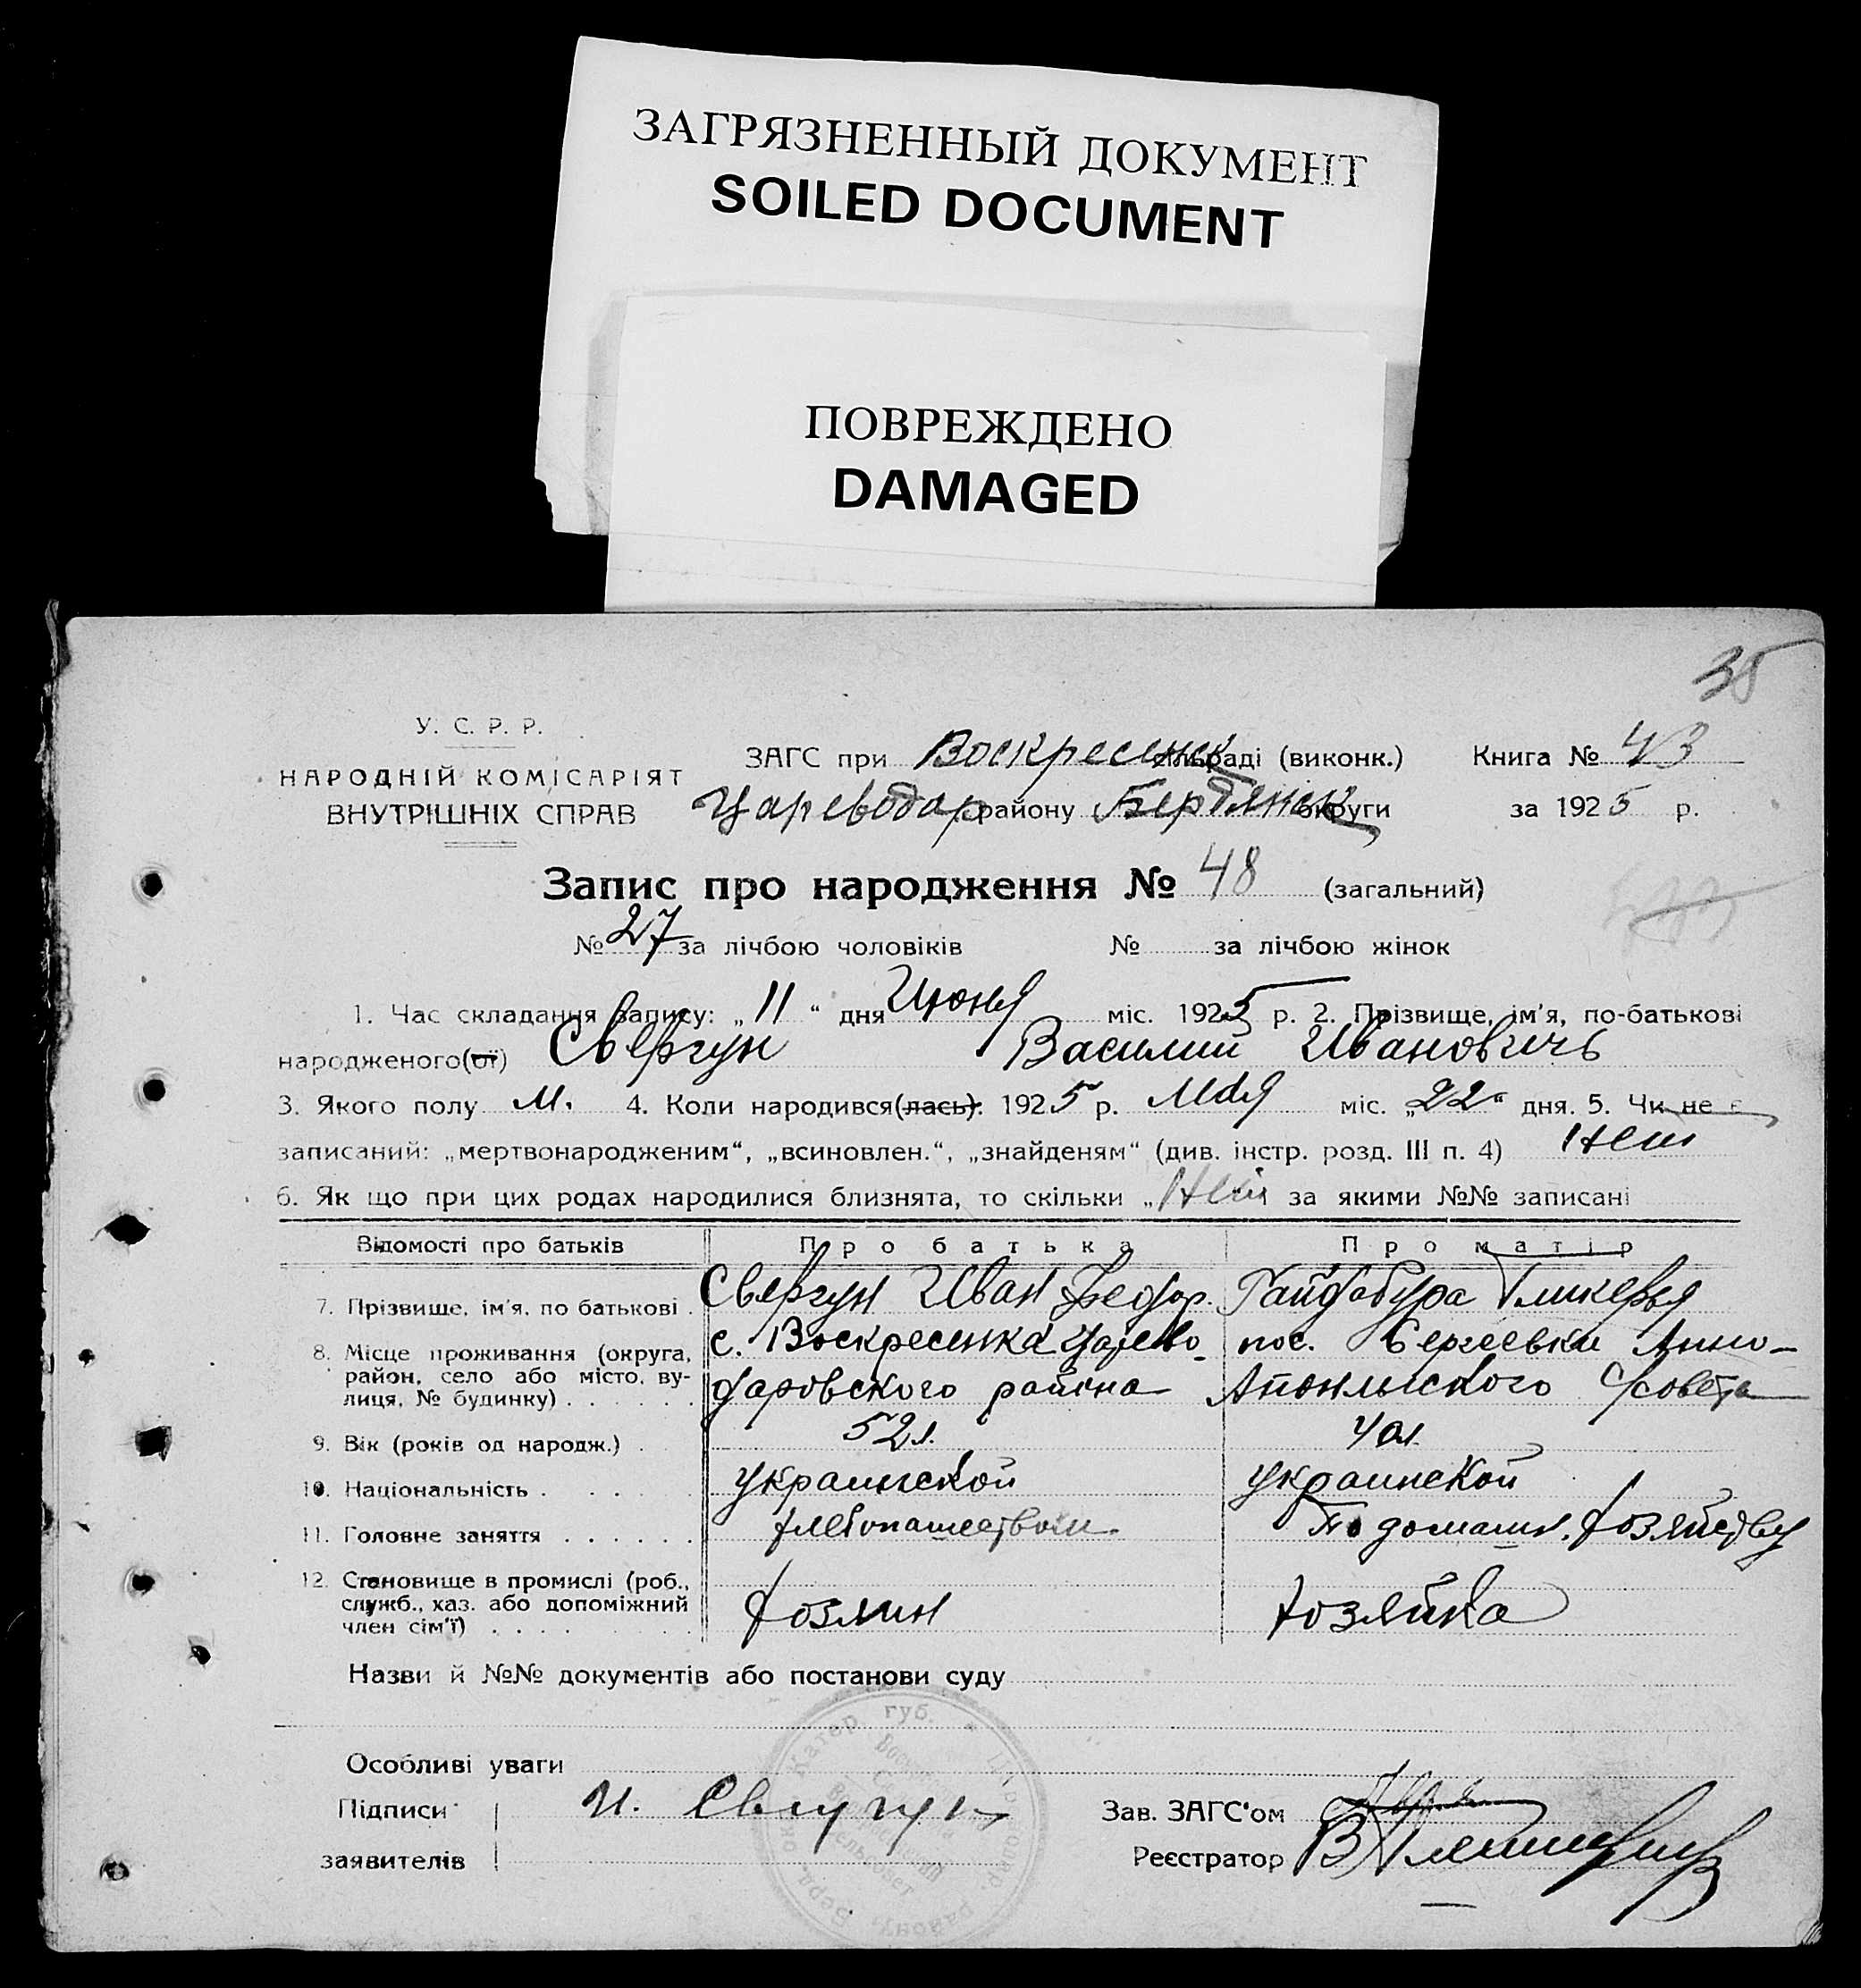 ЗАГРЯЗНЕННЫЙ ДОКУМЕНТ
SOILED DOCUMENT
ПОВРЕЖДЕНО
DAMAGED
35
У. С. Р. Р.
НАРОДНІЙ КОМІСАРІЯТ
ВНУТРІШНІХ СПРАВ
ЗАГС при Воскресенск сільраді (виконк.) Книга № 43
Цареводар району Бердянск округи за 1925 р.
Запис про народження № 48 (загальний)
№ 27 за лічбою чоловіків № за лічбою жінок
1. Час складання запису: „11“ дня Июня міс. 1925 р. 2. Прізвище, ім'я, по-батькові
народженого(ої) Свергун Василий Ивановичь
3. Якого полу м. 4. Коли народився(лась). 1925 р. Мая міс. „22“ дня. 5. Чи не є
записаний: „мертвонародженим“, „всиновлен.“, „знайденям“ (див. інстр. розд. III п. 4) Нет
6. Як що при цих родах народилися близнята, то скільки „Нет за якими №№ записані
Відомості про батьків Про батька Про матір
7. Прізвище, ім'я, по батькові . Свергун Иван Федор. Гайдабура Гликерья
8. Місце проживання (округа, район, село або місто, вулиця, № будинку) . . . . . . с. Воскресенка Царево-
даровского района пос. Сергеевки Анно-
Апольского с/совета
9. Вік (років од народж.) . 52 л. 40 л.
10. Національність . . . . . украинской украинской
11. Головне заняття . . . . . . хлебопашеством. По домашн. хозяйству
12. Становище в промислі (роб., служб., хаз. або допоміжний член сім'ї) . . . . . . хозяин хозяйка
Назви й №№ документів або постанови суду
Особливі уваги
Підписи И. Свергун Зав. ЗАГС'ом
заявителів Реєстратор